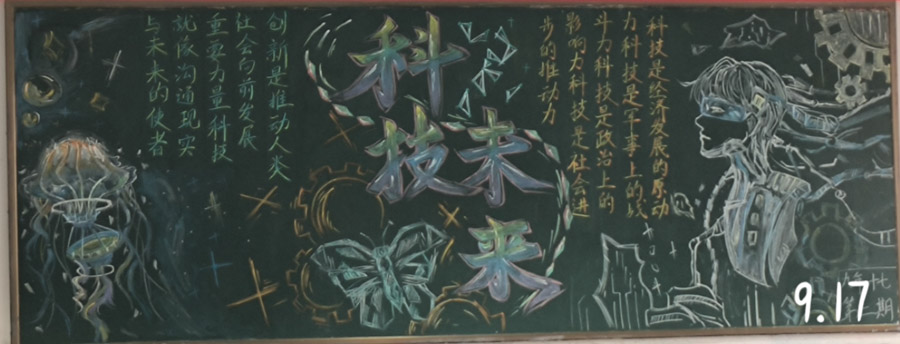 创新是推动人类
社会向前发展
重要力量科技
就像沟通现实
与未来的使者
科技
未来
科技是经济发展的原动
力科技是军事上的战
斗力科技是政治上的
影响力科技是社会进
步的推动力
第
第二期
9.17